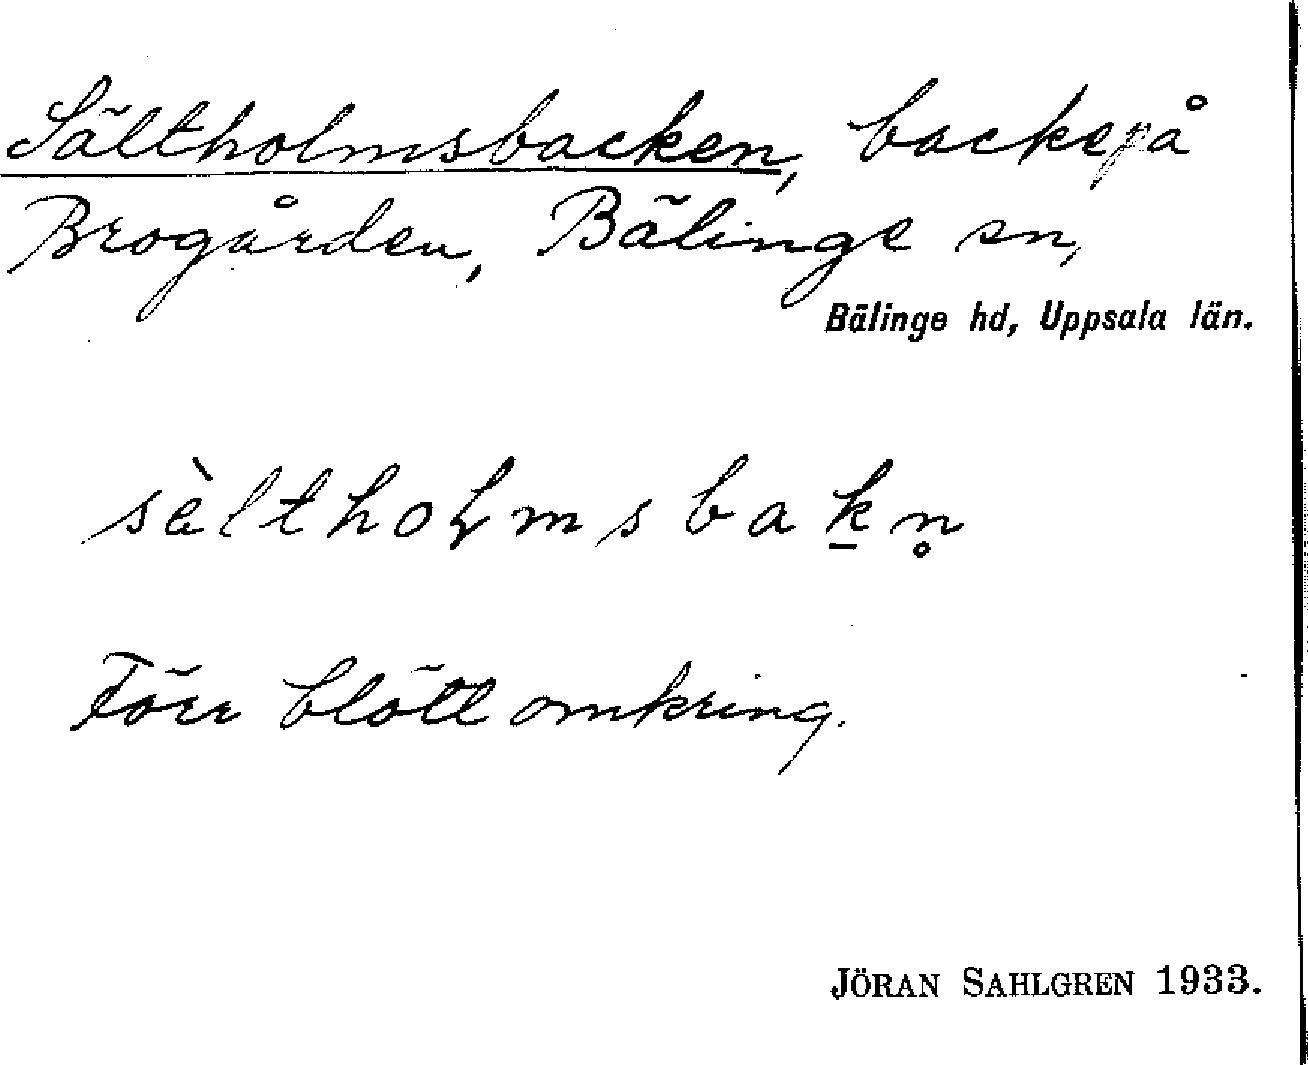 Sältholmsbacken, backe på
Brogården, Bälinge sn,
Bälinge hd, Uppsala län.
sèltholmsbak̲n̥
Förr blött omkring.
JÖRAN SAHLGREN 1933.